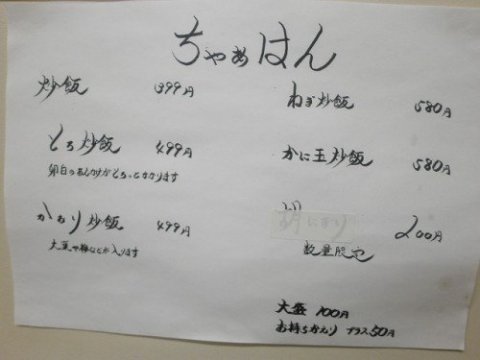 ちゃあはん
炒飯 399円
とろ炒飯 499円
卵白のあんかけがとろっとかかります
かおり炒飯 499円
大葉や梅などが入ります
ねぎ炒飯 580円
かに玉炒飯 580円
にぎり 200円
数量限定
大盛 100円
お持ちかえり プラス50円